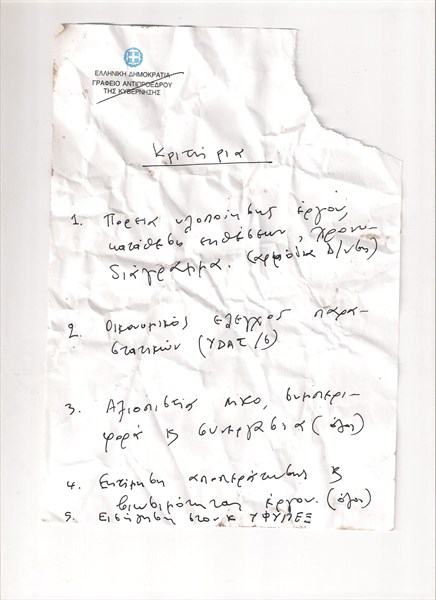 ΕΛΛΗΝΙΚΗ ΔΗΜΟΚΡΑΤΙΑ
ΓΡΑΦΕΙΟ ΑΝΤΙΠΡΟΕΔΡΟΥ
ΤΗΣ ΚΥΒΕΡΝΗΣΗΣ
Κριτήρια
1. Πορεια υλοποίησης έργου,
κατάθεση εκθέσεων, χρονο
διάγραμμα. (αρμόδια Δ/νση)
2. Οικονομικός ελεγχος παρα-
στατικών (ΥΔΑΣ/5)
3. Αξιοπιστία ΜΚΟ, συμπερι-
φορά κ συνεργασια (όλοι)
4. Εκτίμηση αποπεράτωσης κ
βιωσιμότητας έργου. (όλοι)
5. Εισήγηση στον κ ΥΦΥΠΕΞ